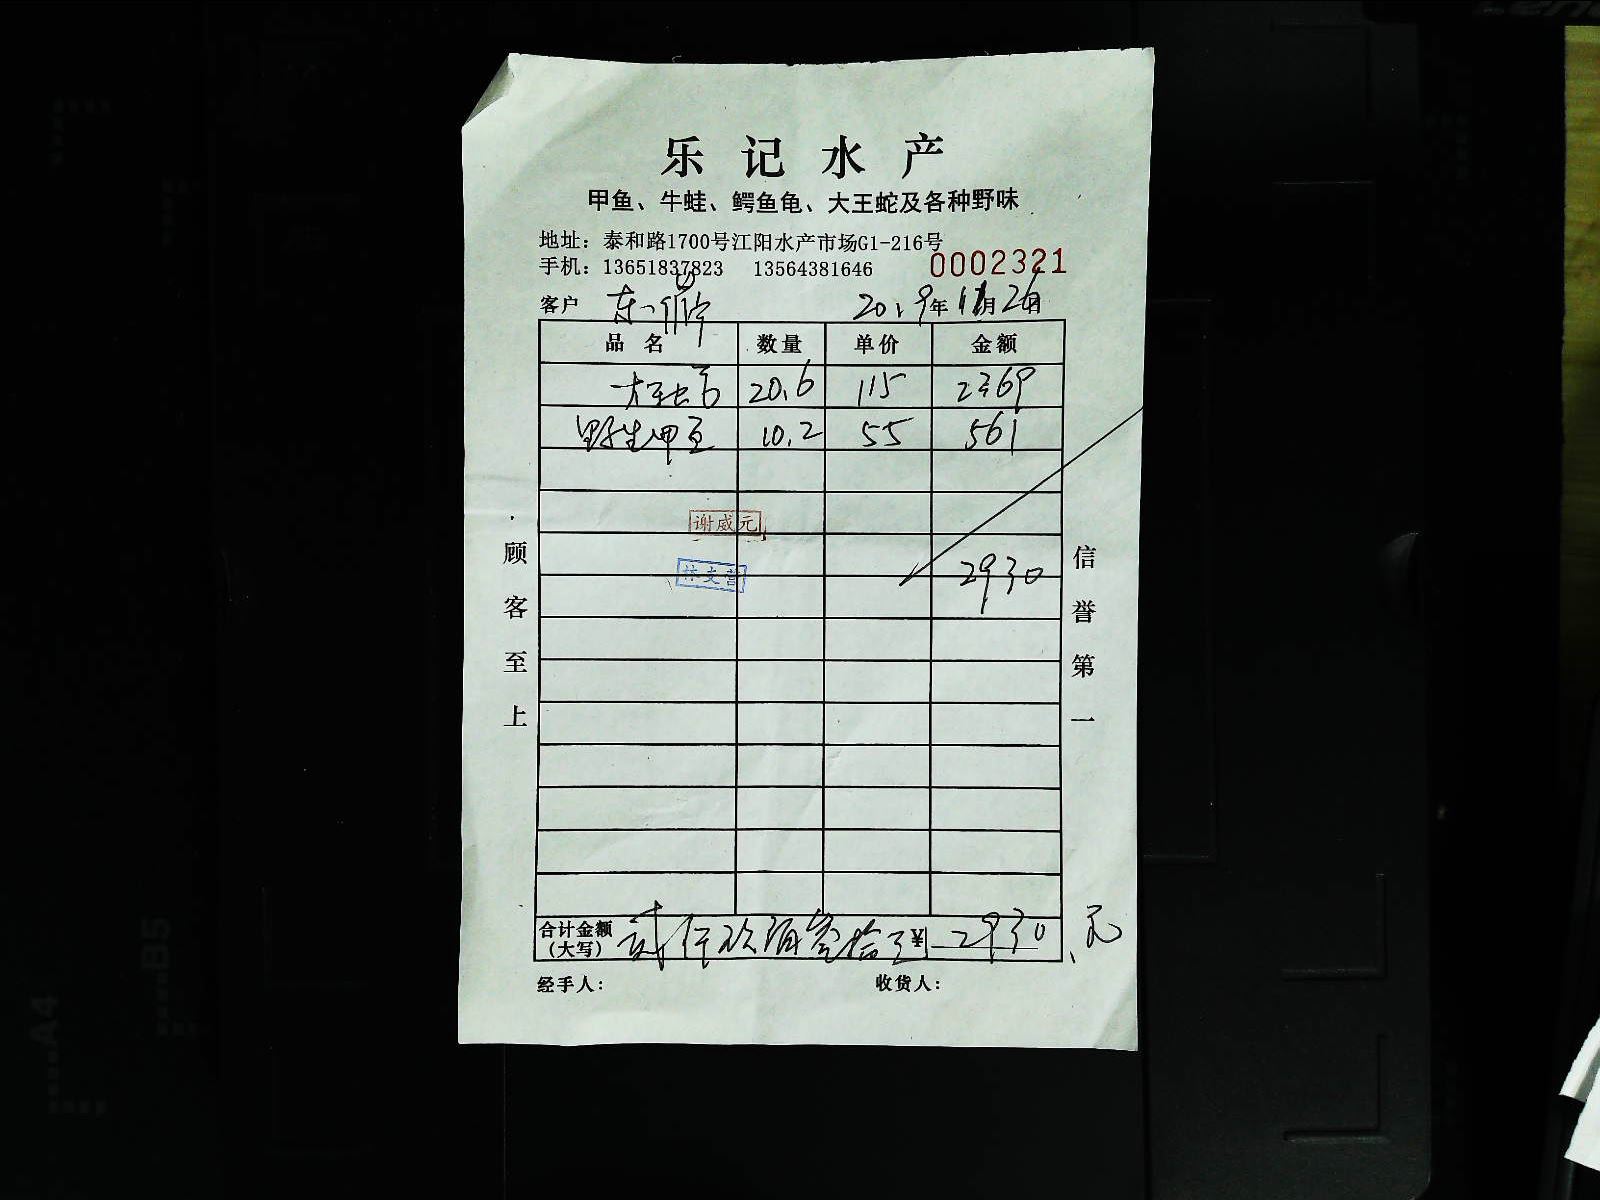 乐记水产
甲鱼、牛蛙、鳄鱼龟、大王蛇及各种野味
地址：泰和路1700号江阳水产市场G1-216号
手机：13651837823 13564381646 0002321
客户 2019年11月26日
品名 数量 单价 金额
20.6 115 2369
野生甲鱼 10.2 55 561
谢威元
2930
林文
顾客至上
信誉第一
合计金额（大写） 贰仟玖佰叁拾元 ¥ 2930 元
经手人： 收货人：